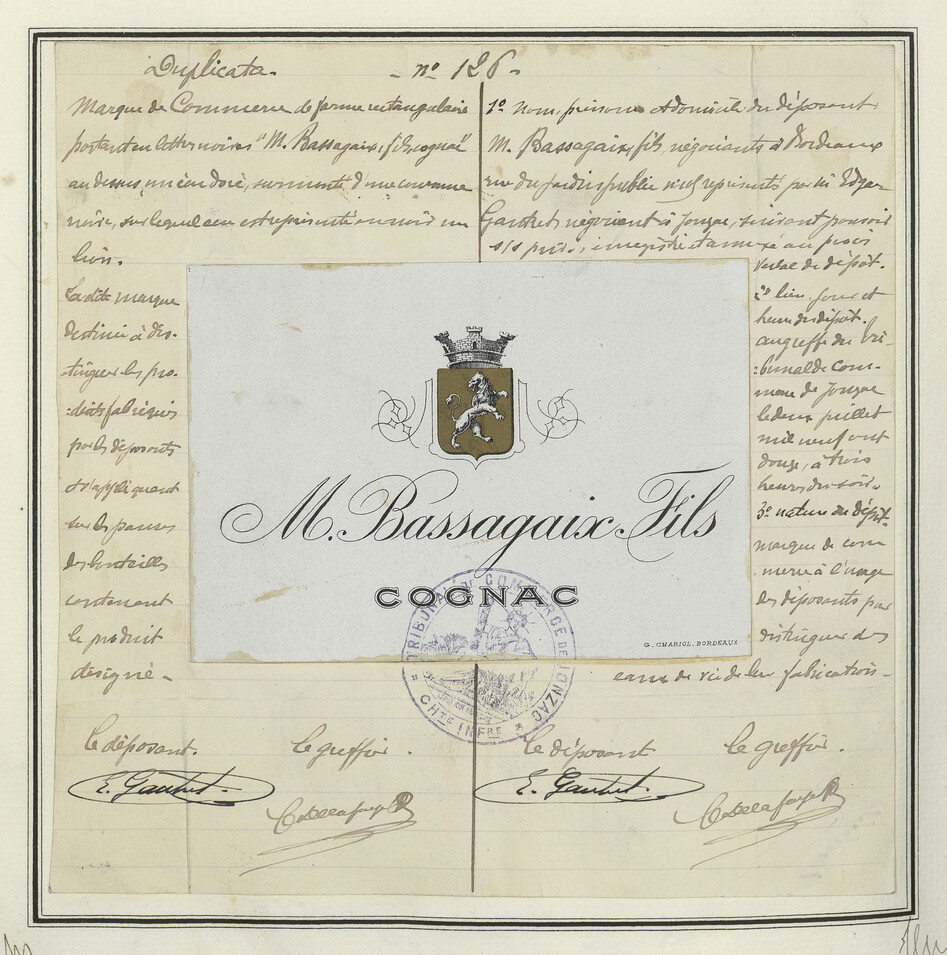 Duplicata. - n° 126 -
Marque de Commerce de forme rectangulaire
portant en lettres noires "M. Bassagaix, fils, cognac"
au dessus, un écu doré, surmonté d'une couronne
noire, sur lequel écu est représenté en noir un
lion.
La dite marque
destinée à dis-
-tinguer les pro-
-duits fabriqués
par les déposants
et s'appliquant
sur les panses
des bouteilles
contenant
le produit
désigné -
1° nom, prénoms et domicile du déposant
M. Bassagaix, fils, négociants à Bordeaux
rue du Jardin public représentés par M. Edgar
Gautret négociant à Jonzac, suivant pouvoir
s/s privé, enregistré et annexé au procès
verbal de dépôt.
2° lieu, jour et
heure du dépôt.
au greffe du Tri-
-bunal de Com-
merce de Jonzac
le deux juillet
mil neuf cent
douze, à trois
heures du soir.
3° nature du dépôt.
marque de com
merce à l'usage
des déposants pour
distinguer des
eaux de vie de leur fabrication -
M. Bassagaix Fils
COGNAC
G. CHARIOL. BORDEAUX
TRIBUNAL DE COMMERCE DE JONZAC
CHTE INFRE
le déposant. le greffier.
E. Gautret
le déposant le greffier.
E. Gautret